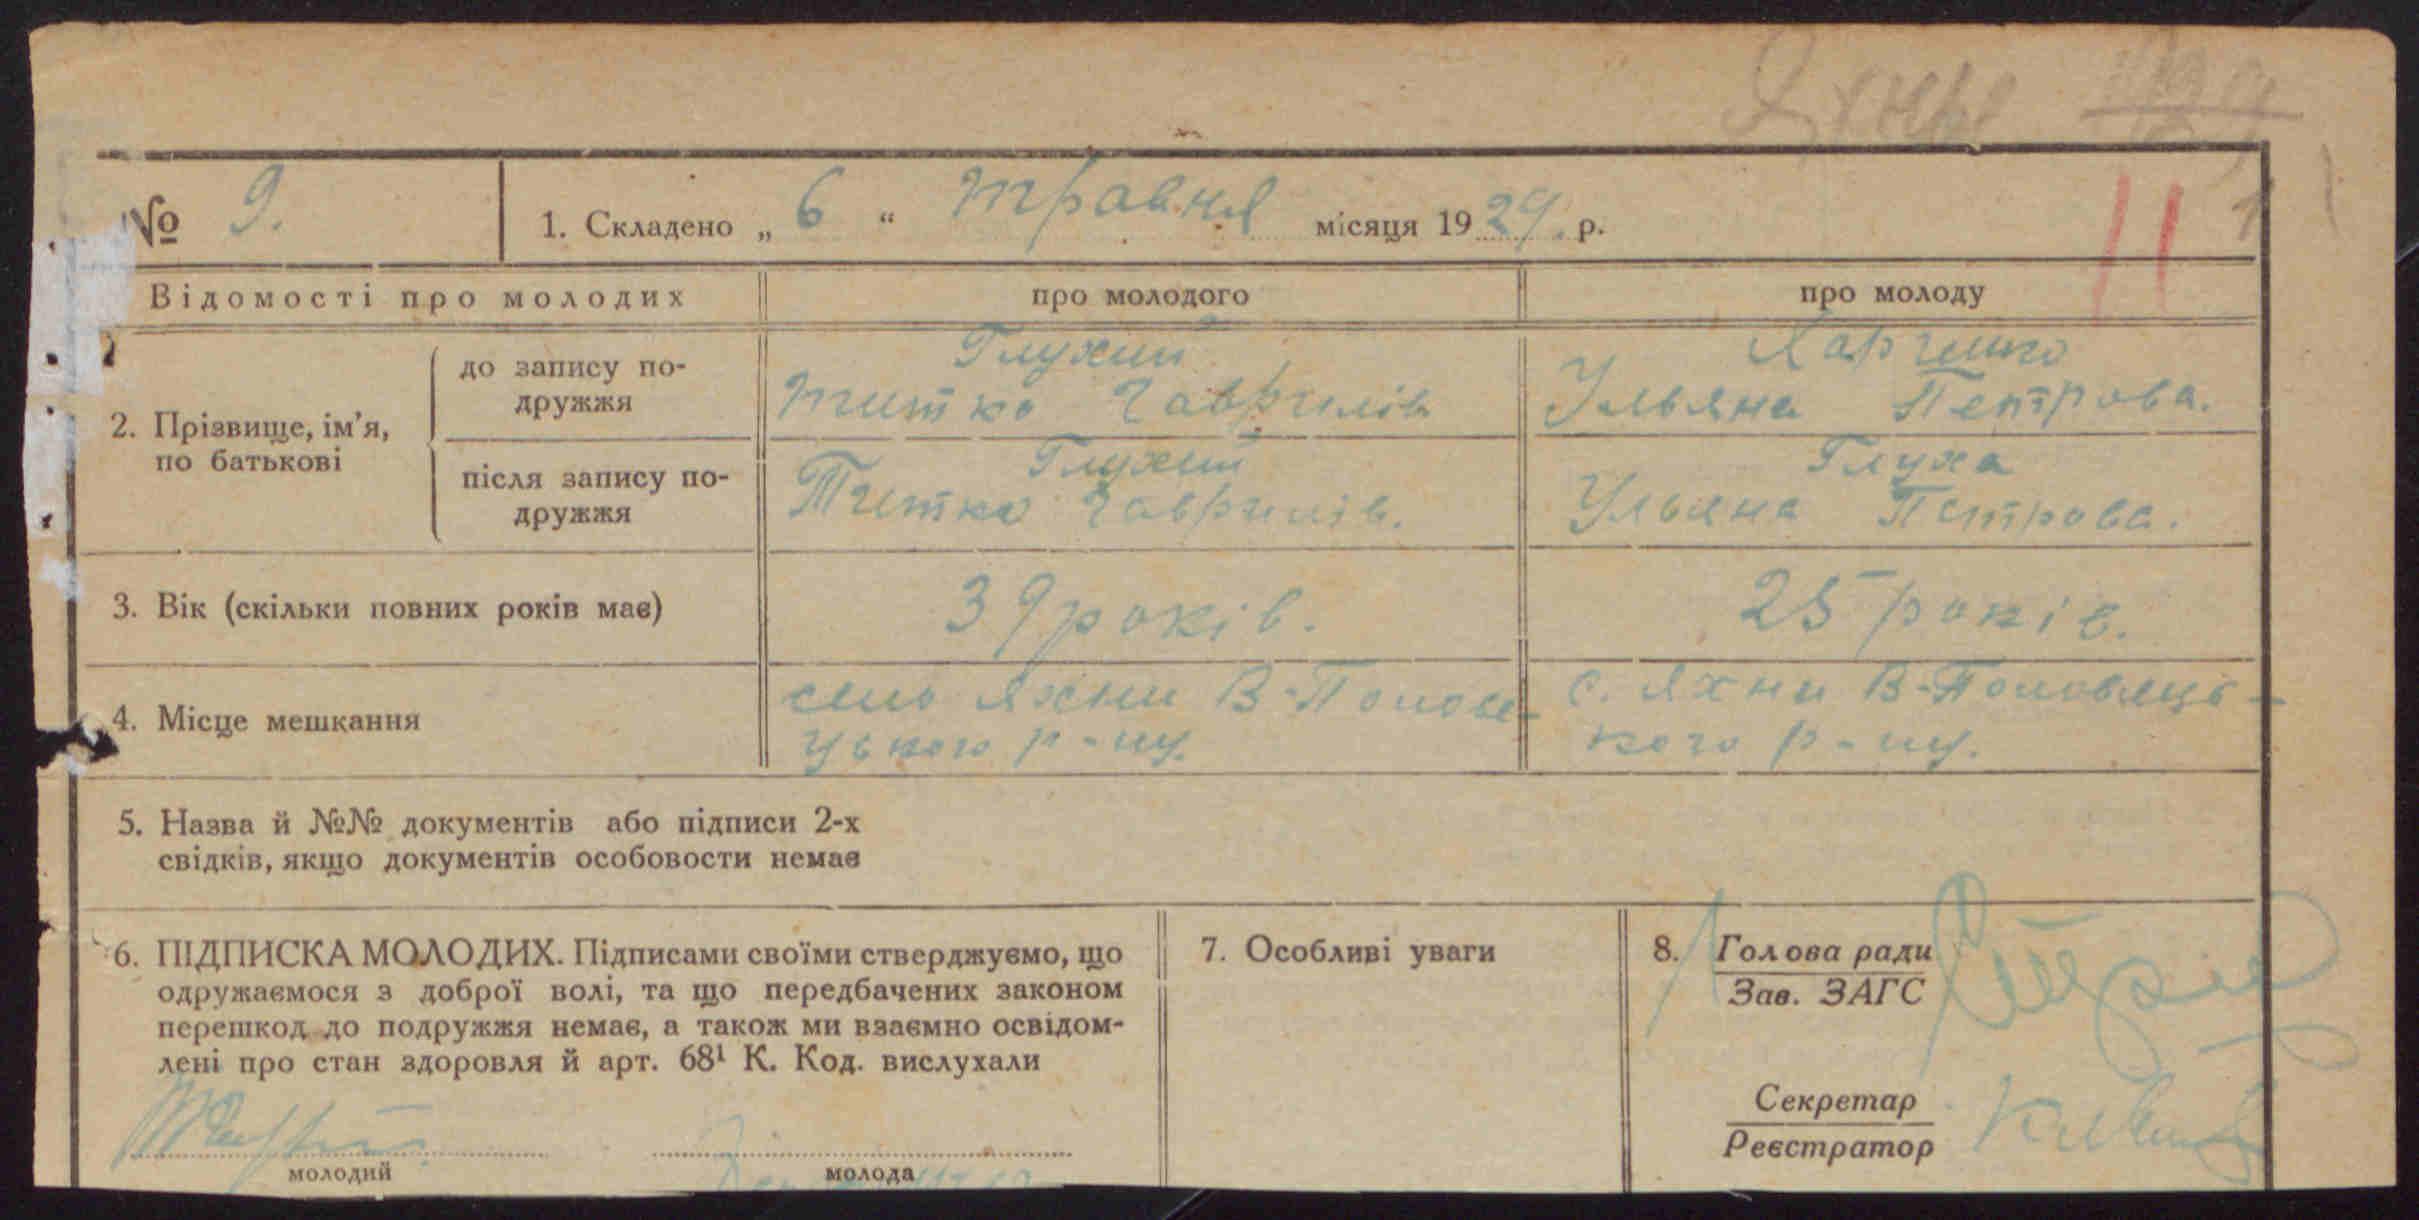 Яхни
№ 9.
1. Складено „ 6 “ травня місяця 1929. р.
11
1
Відомості про молодих
про молодого
про молоду
2. Прізвище, ім’я,
по батькові
до запису по-
дружжя
Глухий
Титко Гаврилів
Харченко
Ульяна Петрова.
після запису по-
дружжя
Глухий
Титко Гаврилів.
Глуха
Ульяна Петрова.
3. Вік (скільки повних років має)
39 років.
25 років.
4. Місце мешкання
село Яхни В-Полове-
цького р-ну.
с. Яхни В-Половець-
кого р-ну.
5. Назва й №№ документів або підписи 2-х
свідків, якщо документів особовости немає
6. ПІДПИСКА МОЛОДИХ. Підписами своїми стверджуємо, що
одружаємося з доброї волі, та що передбачених законом
перешкод до подружжя немає, а також ми взаємно освідом-
лені про стан здоровля й арт. 68¹ К. Код. вислухали
молодий
молода
7. Особливі уваги
8. Голова ради
Зав. ЗАГС
Секретар
Реєстратор